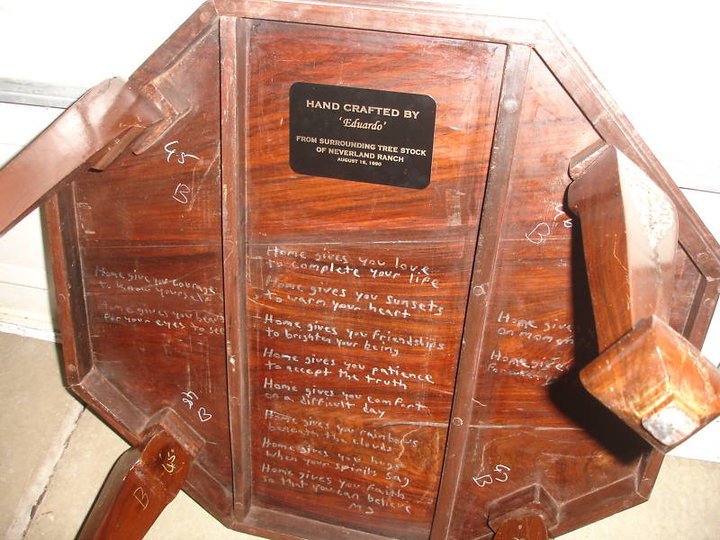 HAND CRAFTED BY
'Eduardo'
FROM SURROUNDING TREE STOCK
OF NEVERLAND RANCH
AUGUST 18, 1990
Home gives you love
to complete your life
Home gives you sunsets
to warm your heart
Home gives you friendships
to brighten your being
Home gives you patience
to accept the truth
Home gives you comfort
on a difficult day
Home gives you rainbows
beneath the clouds
Home gives you hugs
when your spirits sag
Home gives you faith
so that you can believe
MJ
Home give you courage
to know yourself
Home gives you
For your eyes to see
Home gives
on
Home gives
B
B
B
B
B